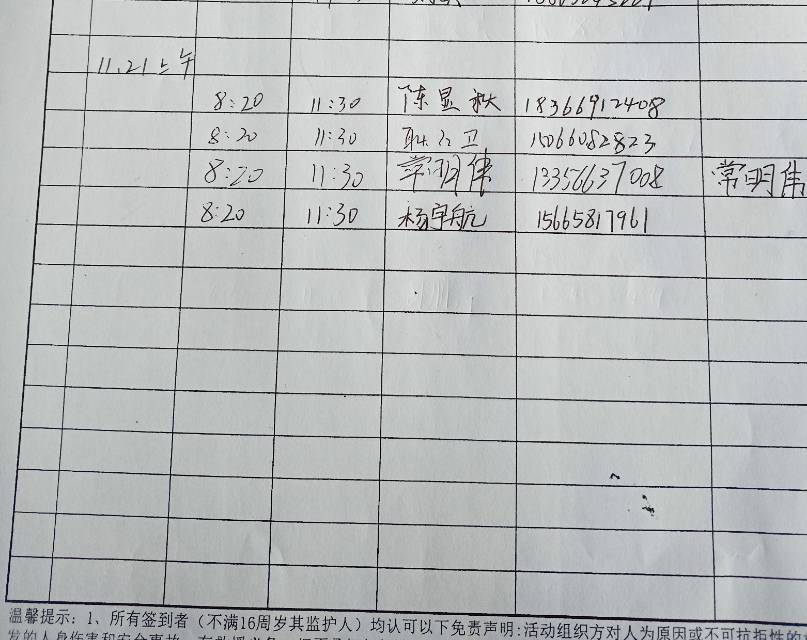 11.21上午
8:20 11:30 陈显秋 18366912408
8:20 11:30 卫 15066082823
8:20 11:30 常明伟 13356637008 常明伟
8:20 11:30 杨宇航 15665817961
温馨提示：1、所有签到者（不满16周岁其监护人）均认可以下免责声明：活动组织方对人为原因或不可抗拒性的